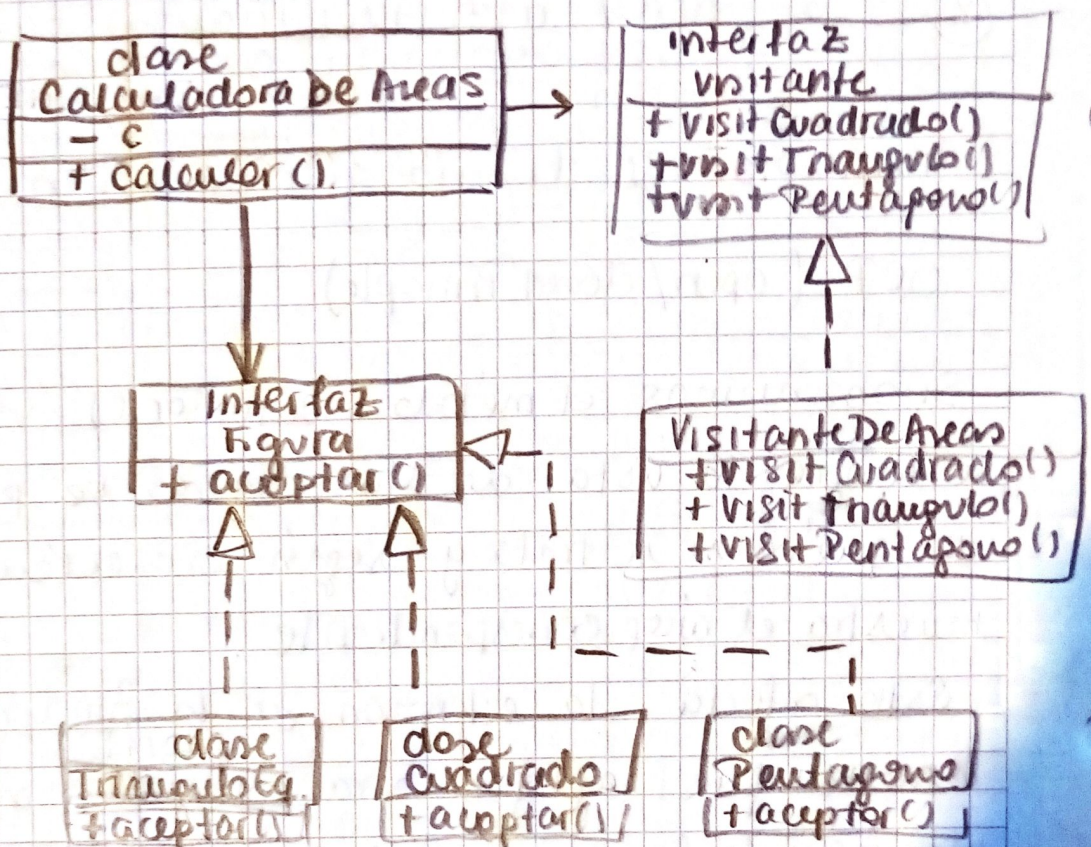 clase
Calculadora De Areas
- c
+ calcular()
interfaz
visitante
+ visit Cuadrado()
+ visit Triangulo()
+ visit Pentágono()
Interfaz
Figura
+ aceptar()
VisitanteDeAreas
+ visit Cuadrado()
+ visit Triángulo()
+ visit Pentágono()
clase
TrianguloEq.
+ aceptar()
clase
Cuadrado
+ aceptar()
clase
Pentagono
+ aceptar()